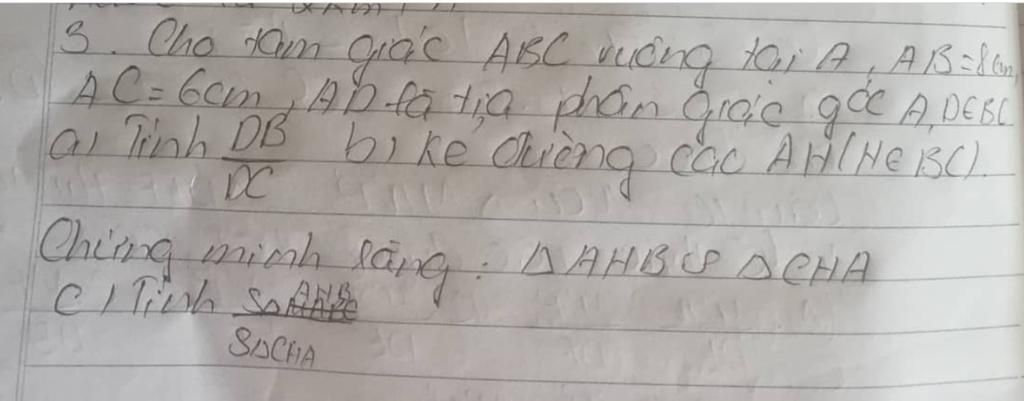 3. Cho tam giác ABC vuông tại A, AB=8cm,
AC=6cm, AD là tia phân giác góc A, D∈BC
a) Tính DB/DC b) kẻ đường cao AH (H∈BC).
Chứng minh rằng: ΔAHB ∽ ΔCHA
c) Tính SΔAHB
SΔCHA